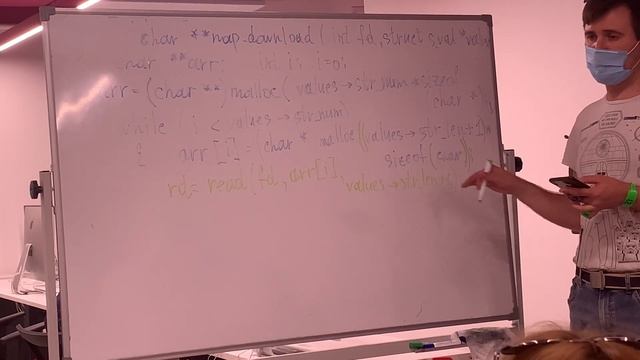 char **map_download(int fd, struct s_val *values
char **arr; int i; i=0;
arr=(char **)malloc(values→str_num*sizeof
char *);
while (i < values→str_num)
{ arr[i]=(char * malloc((values→str_len+1)*
sizeof(char));
rd= read(fd, arr[i], values→strlen+1